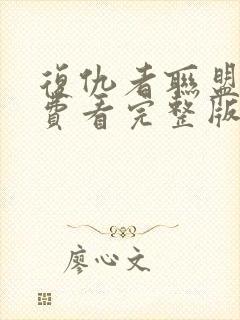 復仇者聯盟
費看完整版
廖心文